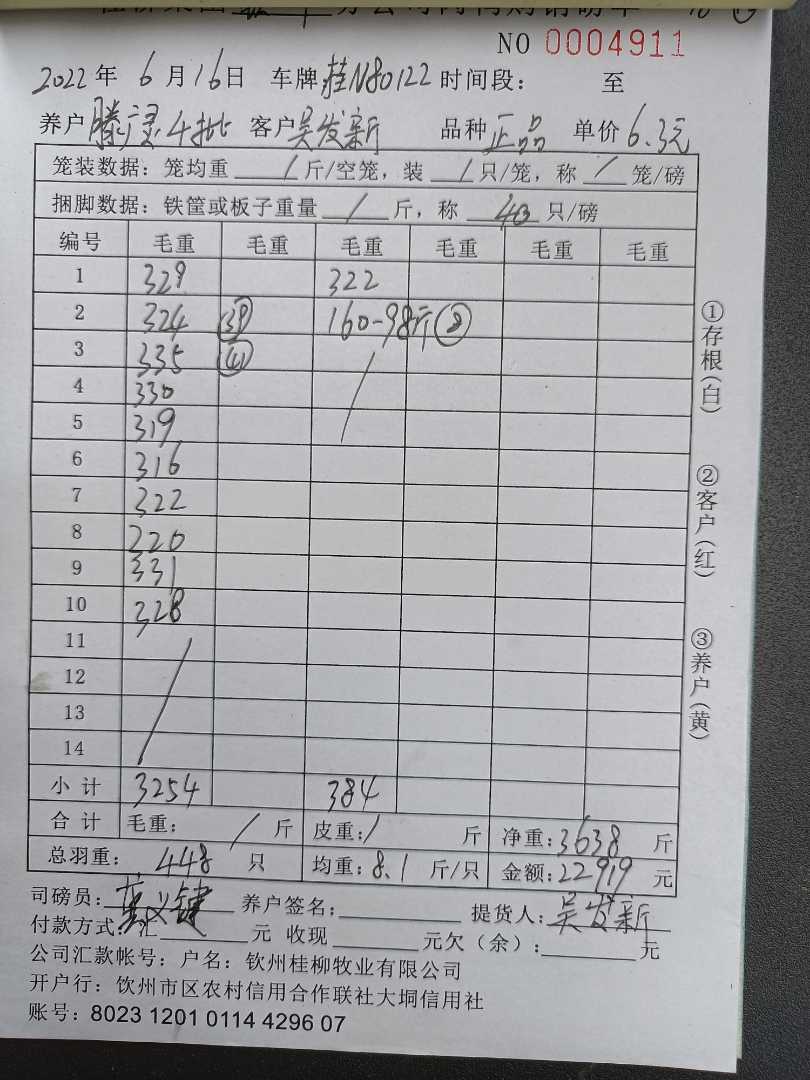 NO 0004911
2022年 6月16日 车牌桂N80122时间段: 至
养户 滕广灵4批 客户吴发新 品种正品 单价6.3元
笼装数据: 笼均重 / 斤/空笼, 装 / 只/笼, 称 / 笼/磅
捆脚数据: 铁筐或板子重量 / 斤, 称 40 只/磅
编号 毛重 毛重 毛重 毛重 毛重 毛重
1 329 322
2 324 39 160-98斤 ⑧
3 335 41
4 330
5 319
6 316
7 322
8 320
9 331
10 328
11
12
13
14
小计 3254 384
合计 毛重: / 斤 皮重: / 斤 净重: 3638 斤
总羽重: 448 只 均重: 8.1 斤/只 金额: 22919 元
司磅员: 养户签名: 提货人: 吴发新
付款方式: 汇 元 收现 元欠(余): 元
公司汇款帐号: 户名: 钦州桂柳牧业有限公司
开户行: 钦州市区农村信用合作联社大垌信用社
账号: 8023 1201 0114 4296 07
①存根(白)
②客户(红)
③养户(黄)